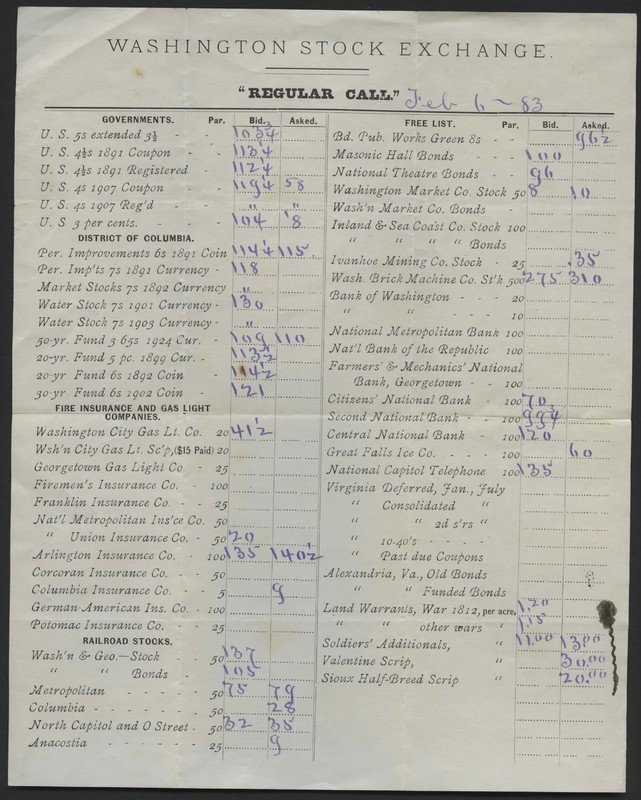 WASHINGTON STOCK EXCHANGE.
"REGULAR CALL." Feb 6 - 83
GOVERNMENTS. Par. Bid. Asked.
U. S. 5s extended 3½ - - 103¾
U. S. 4½s 1891 Coupon - - 113¼
U. S. 4½s 1891 Registered - 112¼
U. S. 4s 1907 Coupon - - 119¼ 58
U. S. 4s 1907 Reg'd - - " "
U. S 3 per cents. - - - 104 ⅛
DISTRICT OF COLUMBIA.
Per. Improvements 6s 1891 Coin 114¼ 115
Per. Imp'ts 7s 1891 Currency - 118
Market Stocks 7s 1892 Currency "
Water Stock 7s 1901 Currency - 130
Water Stock 7s 1903 Currency - "
50-yr. Fund 3 65s 1924 Cur. - 109 110
20-yr. Fund 5 pc. 1899 Cur. - 113½
20-yr Fund 6s 1892 Coin - 114½
30-yr Fund 6s 1902 Coin - 121
FIRE INSURANCE AND GAS LIGHT
COMPANIES.
Washington City Gas Lt. Co. 20 41½
Wsh'n City Gas Lt. Sc'p, ($15 Paid) 20
Georgetown Gas Light Co - 25
Firemen's Insurance Co. - 100
Franklin Insurance Co. - - 25
Nat'l Metropolitan Ins'ce Co. 50
" Union Insurance Co. - 50 20
Arlington Insurance Co. - 100 135 140½
Corcoran Insurance Co. - - 50
Columbia Insurance Co. - - 5 9
German-American Ins. Co. - 100
Potomac Insurance Co. - - 25
RAILROAD STOCKS.
Wash'n & Geo.—Stock - - 50 137
" " Bonds - 105
Metropolitan - - - - - 50 75 79
Columbia - - - - - - 50 28
North Capitol and O Street - 50 32 35
Anacostia - - - - - - 25 9
FREE LIST. Par, Bid. Asked.
Bd. Pub. Works Green 8s - - 96½
Masonic Hall Bonds - - - 100
National Theatre Bonds - - 96
Washington Market Co. Stock 50 8 10
Wash'n Market Co. Bonds -
Inland & Sea Coast Co. Stock 100
" " " " Bonds
Ivanhoe Mining Co. Stock - 25 .35
Wash. Brick Machine Co. St'k 500 275 310
Bank of Washington - - - 20
" " - - - 10
National Metropolitan Bank 100
Nat'l Bank of the Republic 100
Farmers' & Mechanics' National
Bank, Georgetown - - - 100
Citizens' National Bank - 100 70
Second National Bank - - 100 99¾
Central National Bank - 100 120
Great Falls Ice Co. - - - - 100 60
National Capitol Telephone 100 135
Virginia Deferred, Jan., July
" Consolidated "
" " 2d s'rs "
" 10-40's - - - -
" Past due Coupons
Alexandria, Va., Old Bonds
" " Funded Bonds
Land Warrants, War 1812, per acre, 1.20
" " other wars " 1.15
Soldiers' Additionals, " 11.00 13.00
Valentine Scrip, " 30.00
Sioux Half-Breed Scrip " 20.00